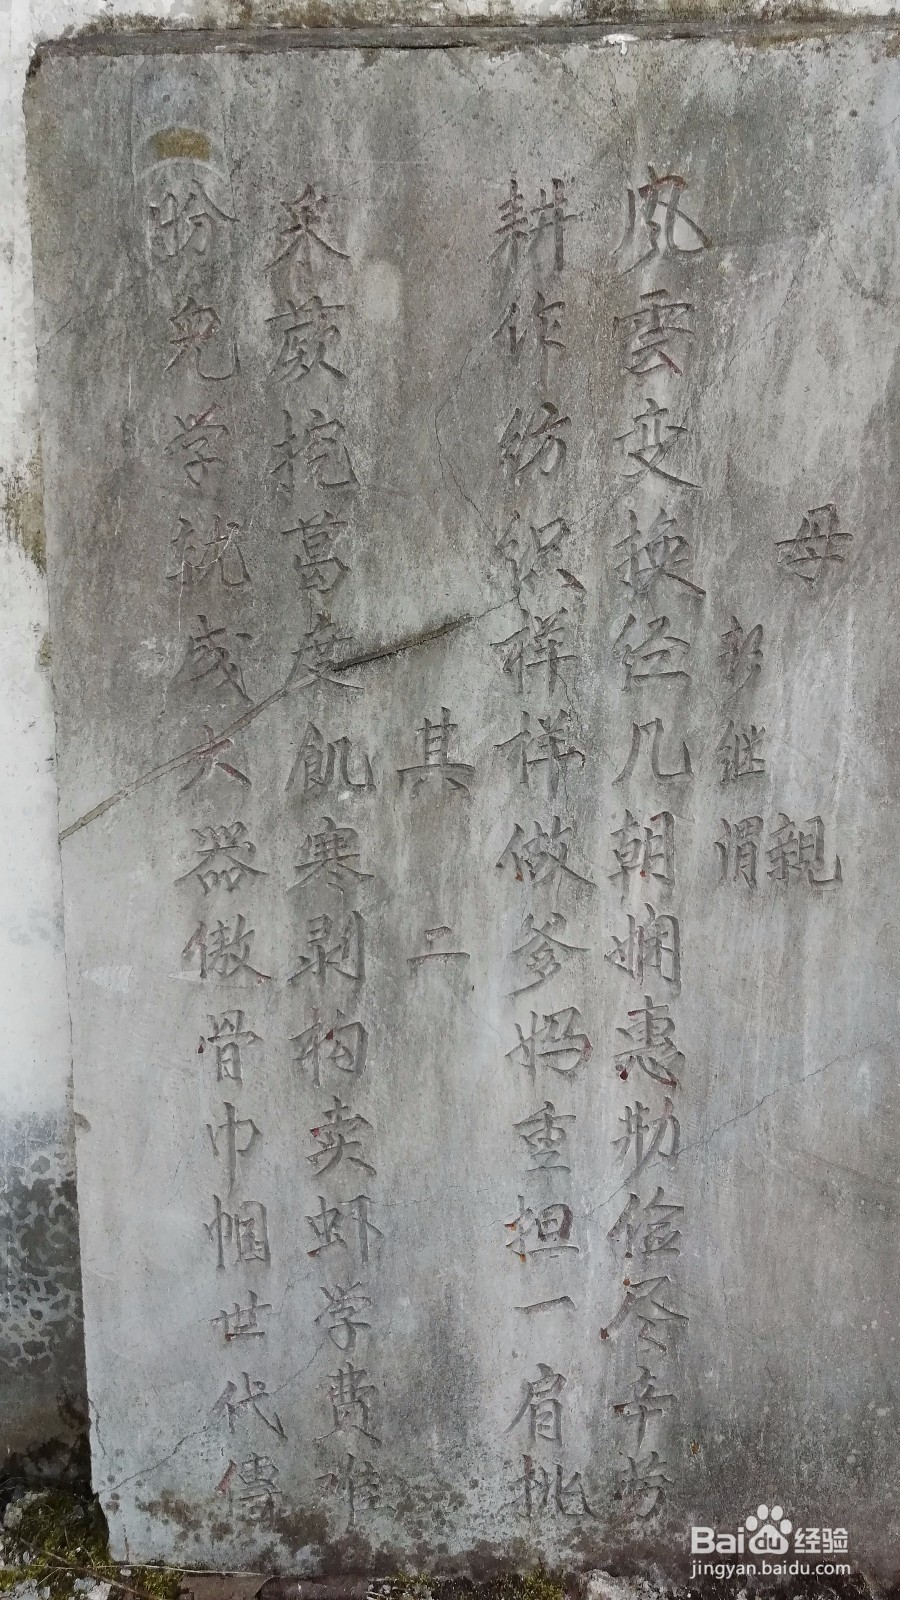 母親
彭继渭
风雲变换经几朝娴惠勤俭尽辛劳
耕作纺织样样做爹妈重担一肩挑
其二
采蕨挖葛度飢寒剥构卖虾学费难
盼儿学就成大器傲骨巾帼世代傳
Baidu经验
jingyan.baidu.com